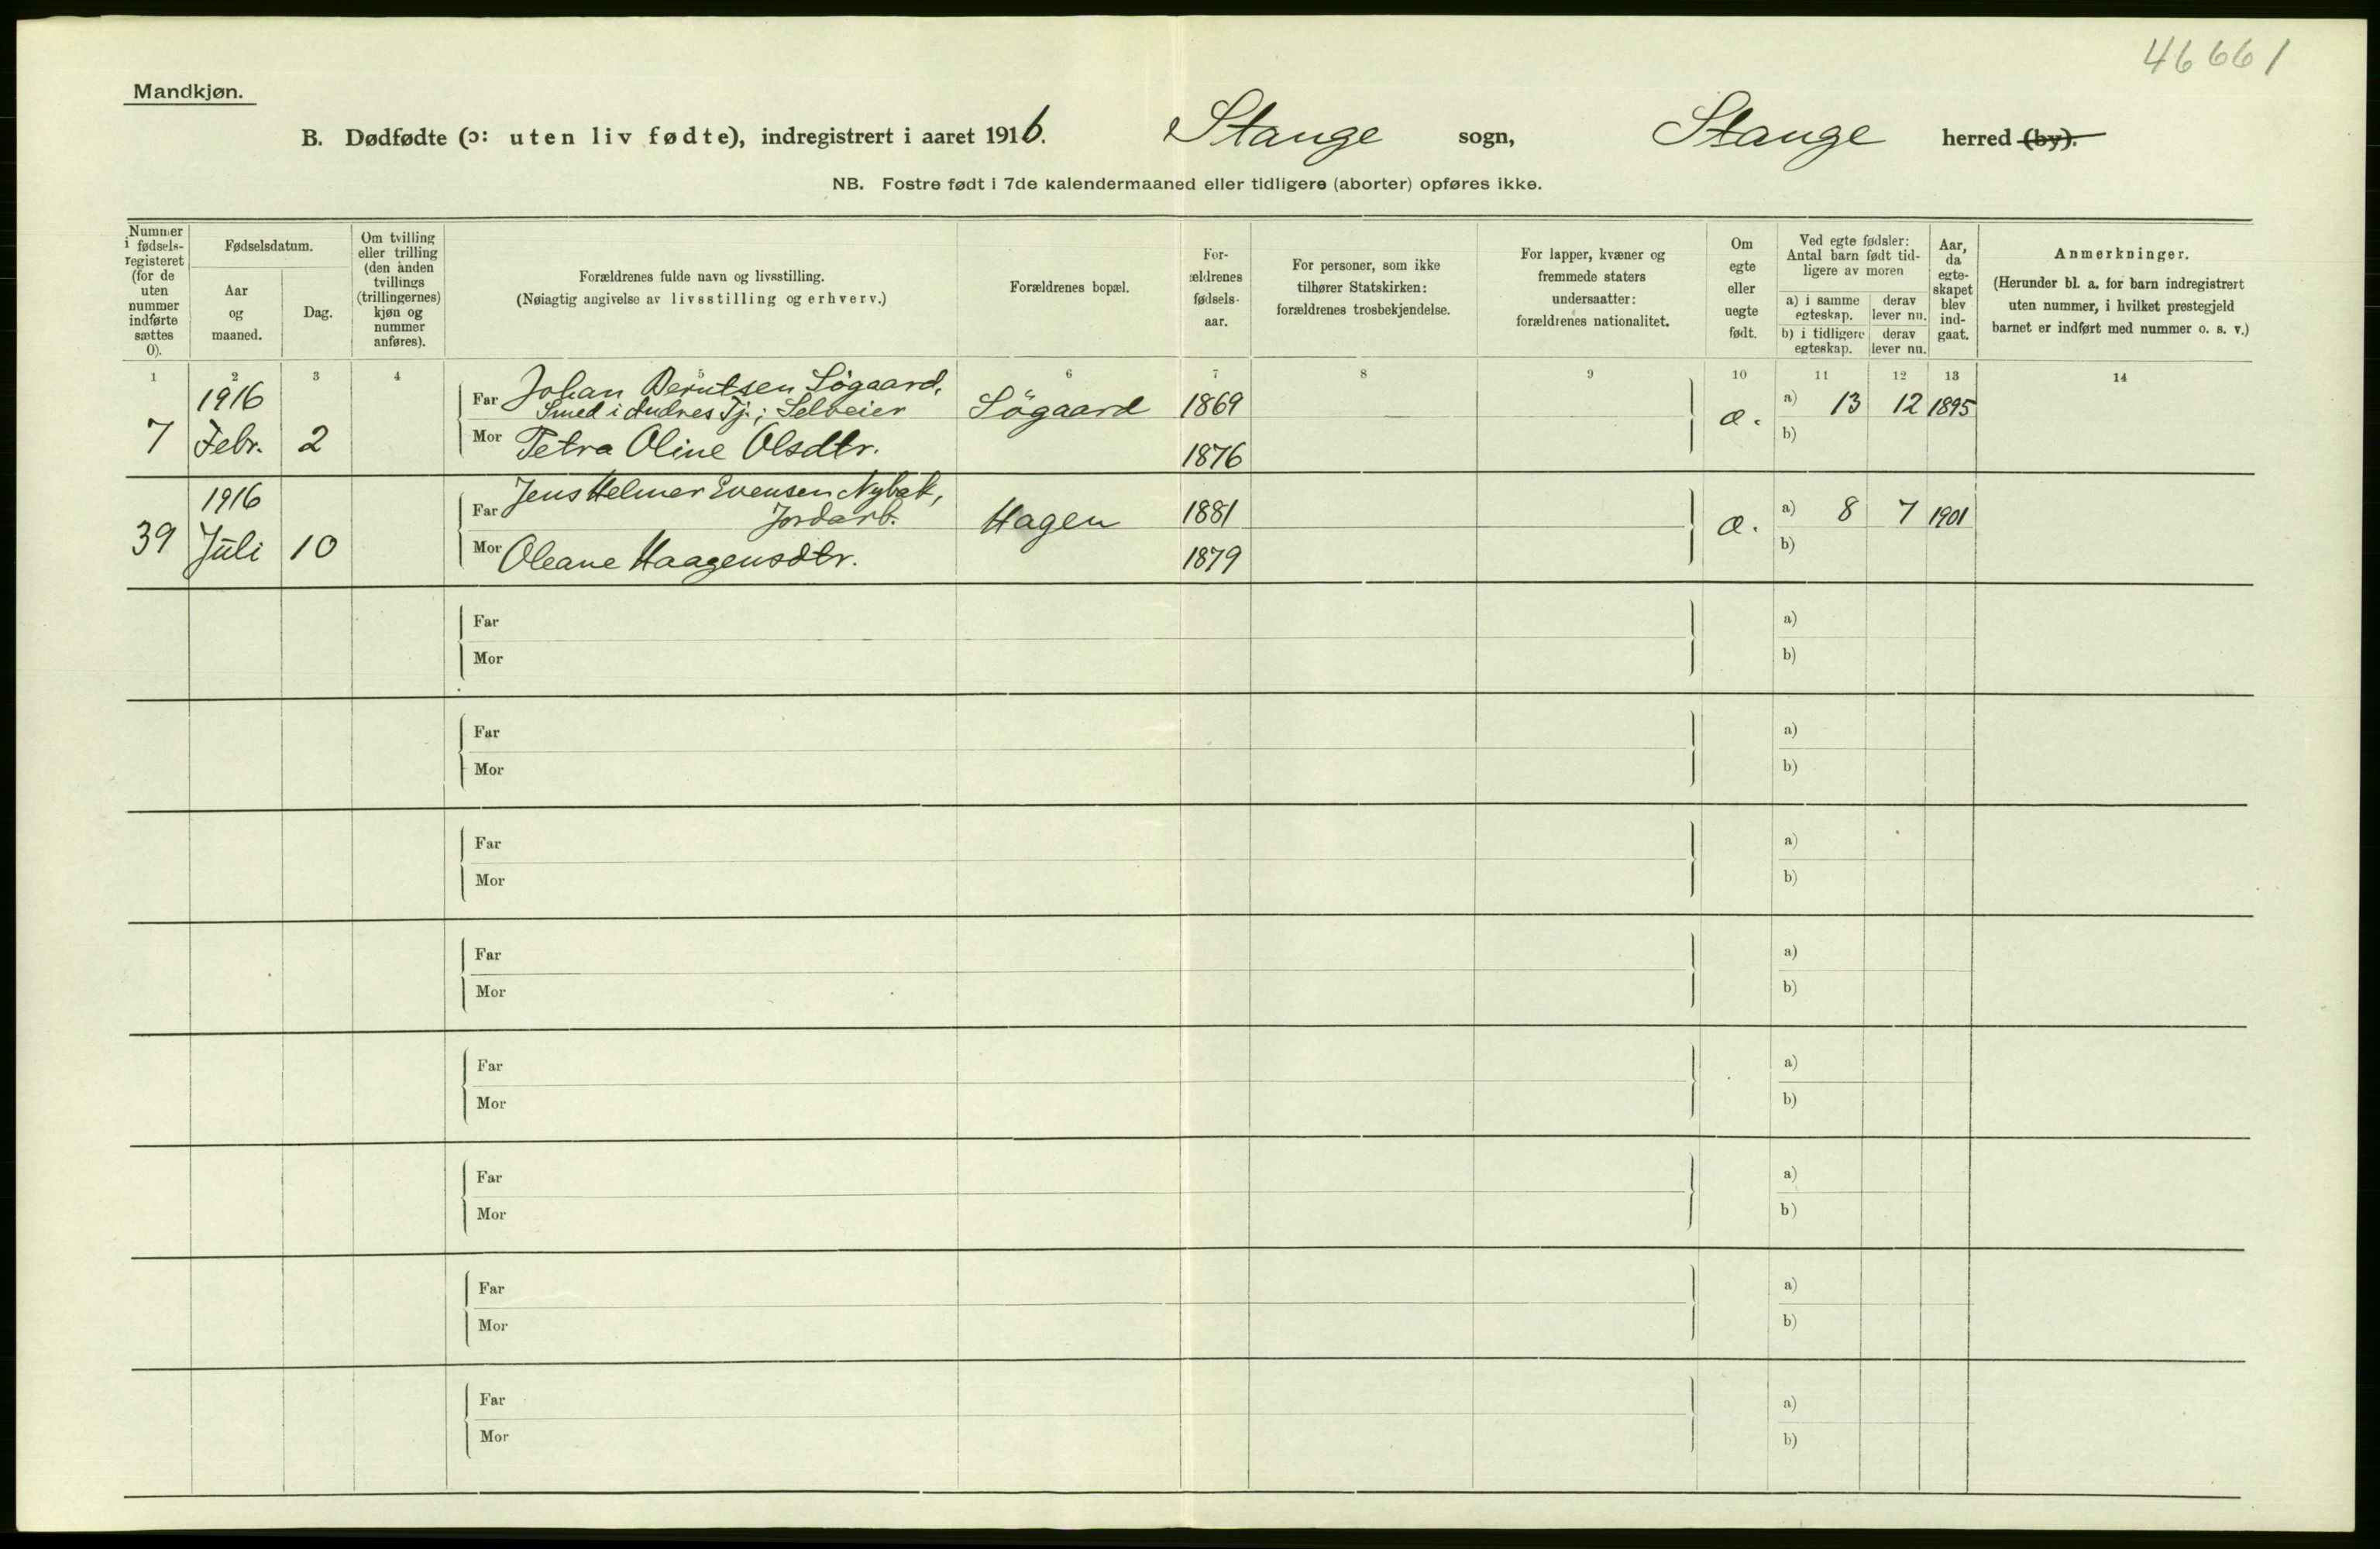 46661
Mandkjøn.
B. Dødfødte (ɔ: uten liv fødte), indregistrert i aaret 1916. Stange sogn, Stange herred (by).
NB. Fostre født i 7de kalendermaaned eller tidligere (aborter) opføres ikke.
Nummer i fødsels-registeret (for de uten nummer indførte sættes 0).
Fødselsdatum.
Aar og maaned.
Dag.
Om tvilling eller trilling (den anden tvillings (trillingernes) kjøn og nummer anføres).
Forældrenes fulde navn og livsstilling.
(Nøiagtig angivelse av livsstilling og erhverv.)
Forældrenes bopæl.
For-ældrenes fødsels-aar.
For personer, som ikke tilhører Statskirken: forældrenes trosbekjendelse.
For lapper, kvæner og fremmede staters undersaatter: forældrenes nationalitet.
Om egte eller uegte født.
Ved egte fødsler: Antal barn født tid-ligere av moren
a) i samme egteskap. derav lever nu.
b) i tidligere egteskap. derav lever nu.
Aar, da egte-skapet blev ind-gaat.
Anmerkninger.
(Herunder bl. a. for barn indregistrert uten nummer, i hvilket prestegjeld barnet er indført med nummer o. s. v.)
1 2 3 4 5 6 7 8 9 10 11 12 13 14
1916 Far Johan Berntsen Søgaard,
Smed i Andres Tj.; Selveier Søgaard 1869 a) 13 12 1895
7 Febr. 2 Mor Petra Oline Olsdtr. 1876 æ. b)
1916 Far Jens Helmer Evensen Nybak,
Jordarb. Hagen 1881 a) 8 7 1901
39 Juli 10 Mor Oleane Haagensdtr. 1879 æ. b)
Far a)
Mor b)
Far a)
Mor b)
Far a)
Mor b)
Far a)
Mor b)
Far a)
Mor b)
Far a)
Mor b)
Far a)
Mor b)
Far a)
Mor b)